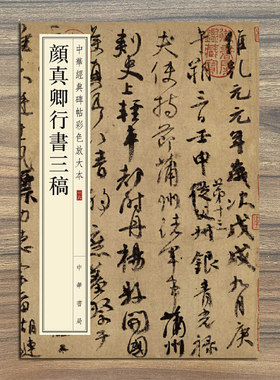 維乾元元年歲次戊戌九月庚
午朔三日壬申從父銀青光祿
第十三
夫使持節蒲州諸軍事蒲州
刺史上輕車都尉丹楊縣開國
中華經典碑帖彩色放大本
中華書局
顏真卿行書三稿